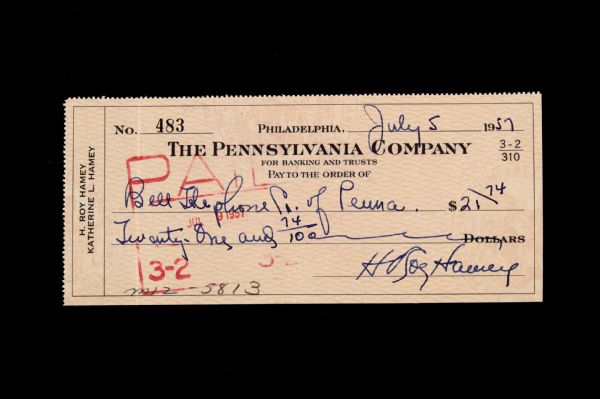 No. 483 PHILADELPHIA, July 5 1957
THE PENNSYLVANIA COMPANY 3-2
310
FOR BANKING AND TRUSTS
PAY TO THE ORDER OF
PAID
Bell Telephone Co. of Penna. $21 74
JUL 1957
Twenty-One and 74/100 DOLLARS
3-2
H Roy Hamey
5813
H. ROY HAMEY
KATHERINE L. HAMEY